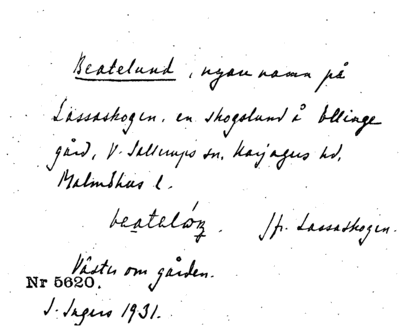 Beatelund, nyare namn på
Lassaskogen, en skogslund å Ellinge
gård, V. Sallerups sn, Harjagers hd,
Malmöhus l.
Jfr. Lassaskogen.
Väster om gården.
Nr 5620.
I. Ingers 1931.